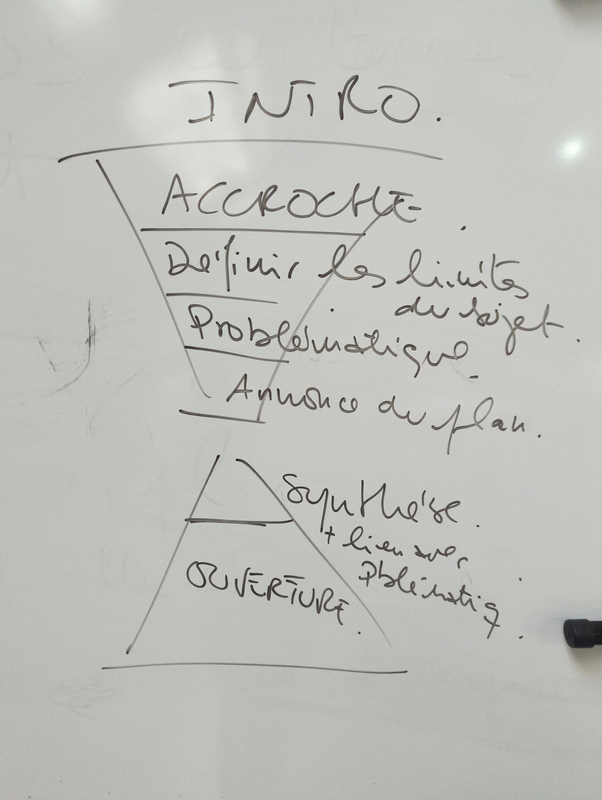 INTRO.
ACCROCHE.
Définir les limites
du sujet.
Problématique.
Annonce du plan.
Synthèse.
+ lien avec
Pblématiq.
OUVERTURE.